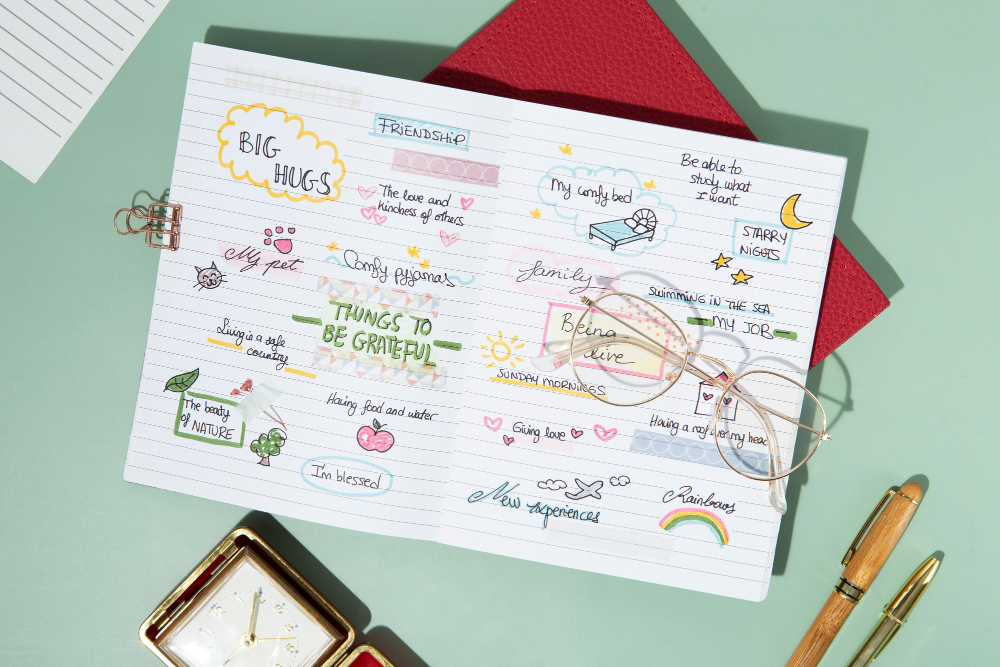 BIG
HUGS
FRIENDSHIP
The love and
kindness of others
My pet
Comfy pyjamas
THINGS TO
BE GRATEFUL
Living is a safe
country
The beauty
of NATURE
Having food and water
I'm blessed
My comfy bed
Be able to
study what
I want
STARRY
NIGHTS
family
SWIMMING IN THE SEA
MY JOB
Being
alive
SUNDAY MORNINGS
Giving love
Having a roof over my head
New experiences
Rainbows